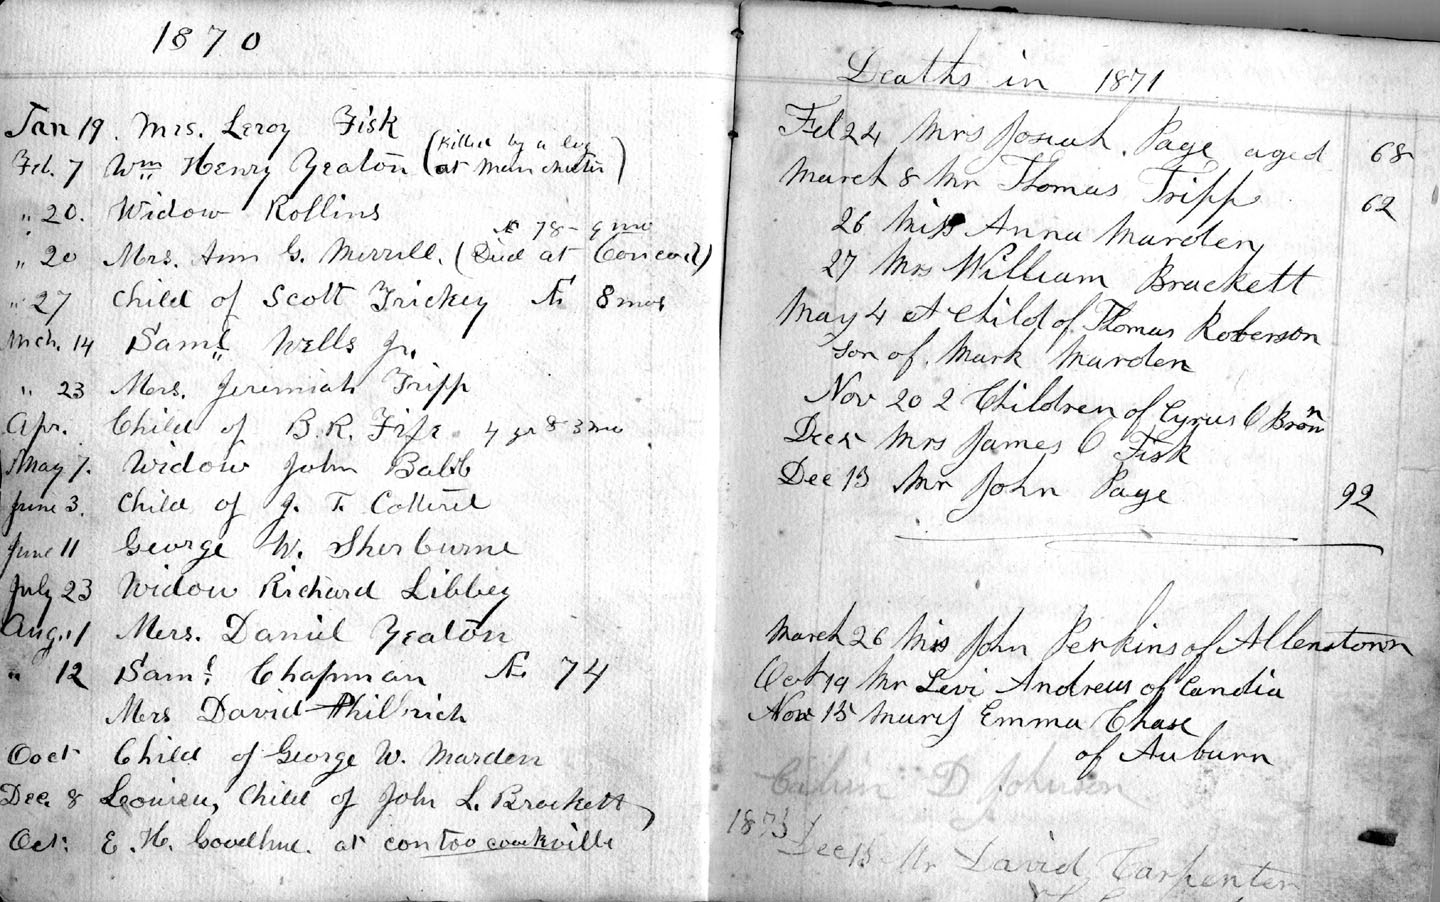 1870
Jan 19. Mrs. Leroy Fisk
Feb. 7 Wm Henry Yeaton (Killed by a log
at Manchester)
" 20. Widow Rollins
Æ 78 - 9 mo
" 20 Mrs. Ann G. Merrill. (Died at Concord)
" 27 Child of Scott Trickey Æ 8 mos
Mch. 14 Saml Wells Jr.
" 23 Mrs. Jeremiah Tripp
Apr. Child of B. R. Fife 4 yr & 3 mo
May 7. Widow John Babb
June 3. Child of J. T. Cotterel
June 11 George W. Sherburne
July 23 Widow Richard Libbey
Aug. 1 Mers. Daniel Yeaton
" 12 Saml Chapman Æ 74
Mrs David Philbrich
Ooct Child of George W. Marden
Dec. 8 Child of John L. Brackett
Oct: E. H. Goodhue. at contoocookville
Deaths in 1871
Feb 24 Mrs Josiah. Page aged 68
March 8 Mr Thomas Tripp 62
26 Miss Anna Marden
27 Mrs William Brackett
May 4 A Child of Thomas Roberson
Son of. Mark Marden
Nov 20 2 Children of Cyrus O Brown
Dec Mrs James O Fisk
Dec 13 Mr John Page 92
March 26 John Perkins of Allenstown
Oct 19 Mr Levi Andrews of Candia
Nov 15 Mary Emma Chase
of Auburn
Calvin D Johnson
1873
Dec 15 Mr David Carpenter